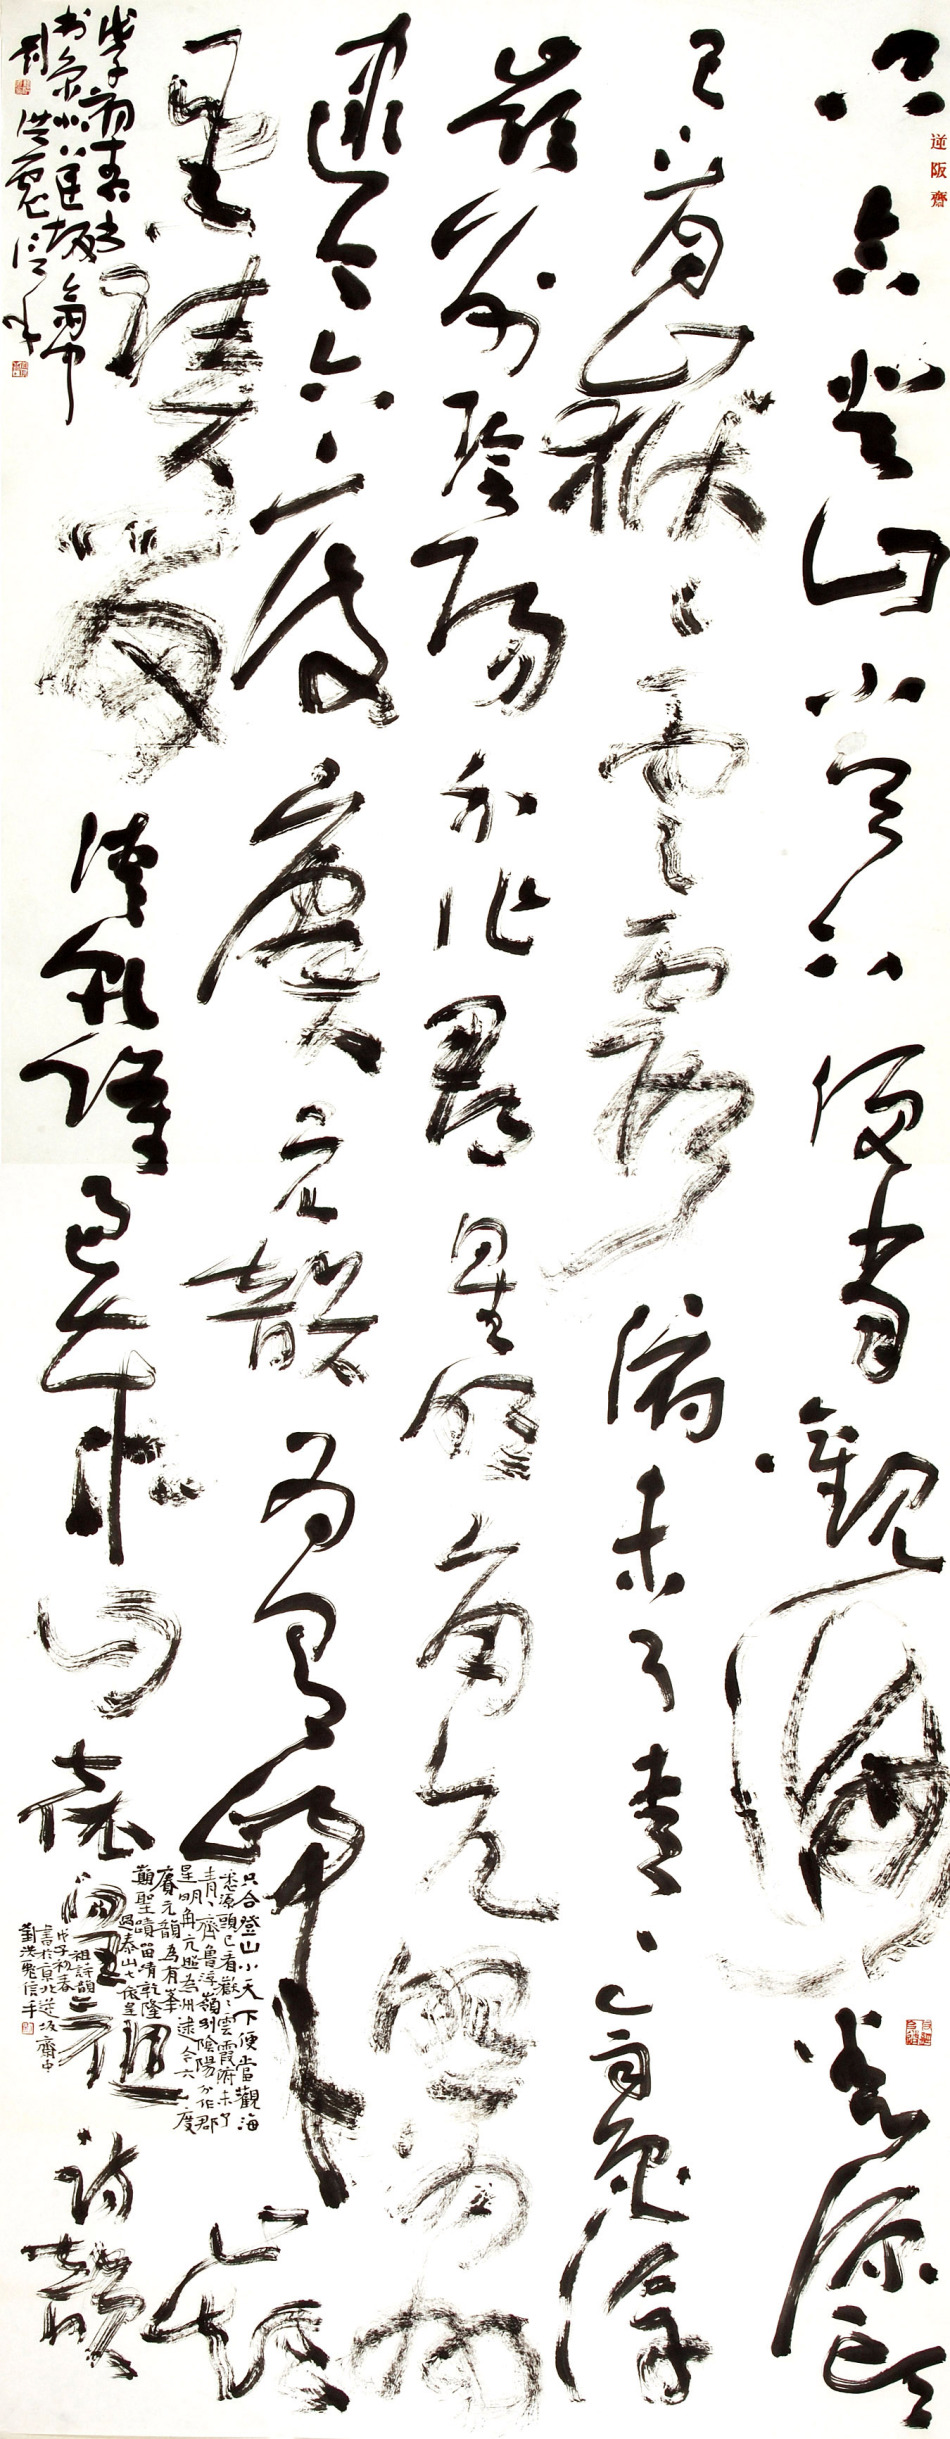 逆阪齋
只合登山小天下便當觀海悉源頭
已看嶽〻雲霞府未了青〻齊魯浮
嶺別陰陽分作郡星明角亢照為州
逮今六一度賡元韻為有峯巔
聖蹟留清乾隆過泰山七依皇祖詩韻
戊子初春
書於京北逆阪齋中
劉洪彪信手
只合登山小天下便當觀海
悉源頭已看嶽〻雲霞府未了
青〻齊魯浮嶺別陰陽分作郡
星明角亢照為州逮今六一度
賡元韻為有峯
巔聖蹟留清乾隆
過泰山七依皇
祖詩韻
戊子初春
書於京北逆阪齋中
劉洪彪信手